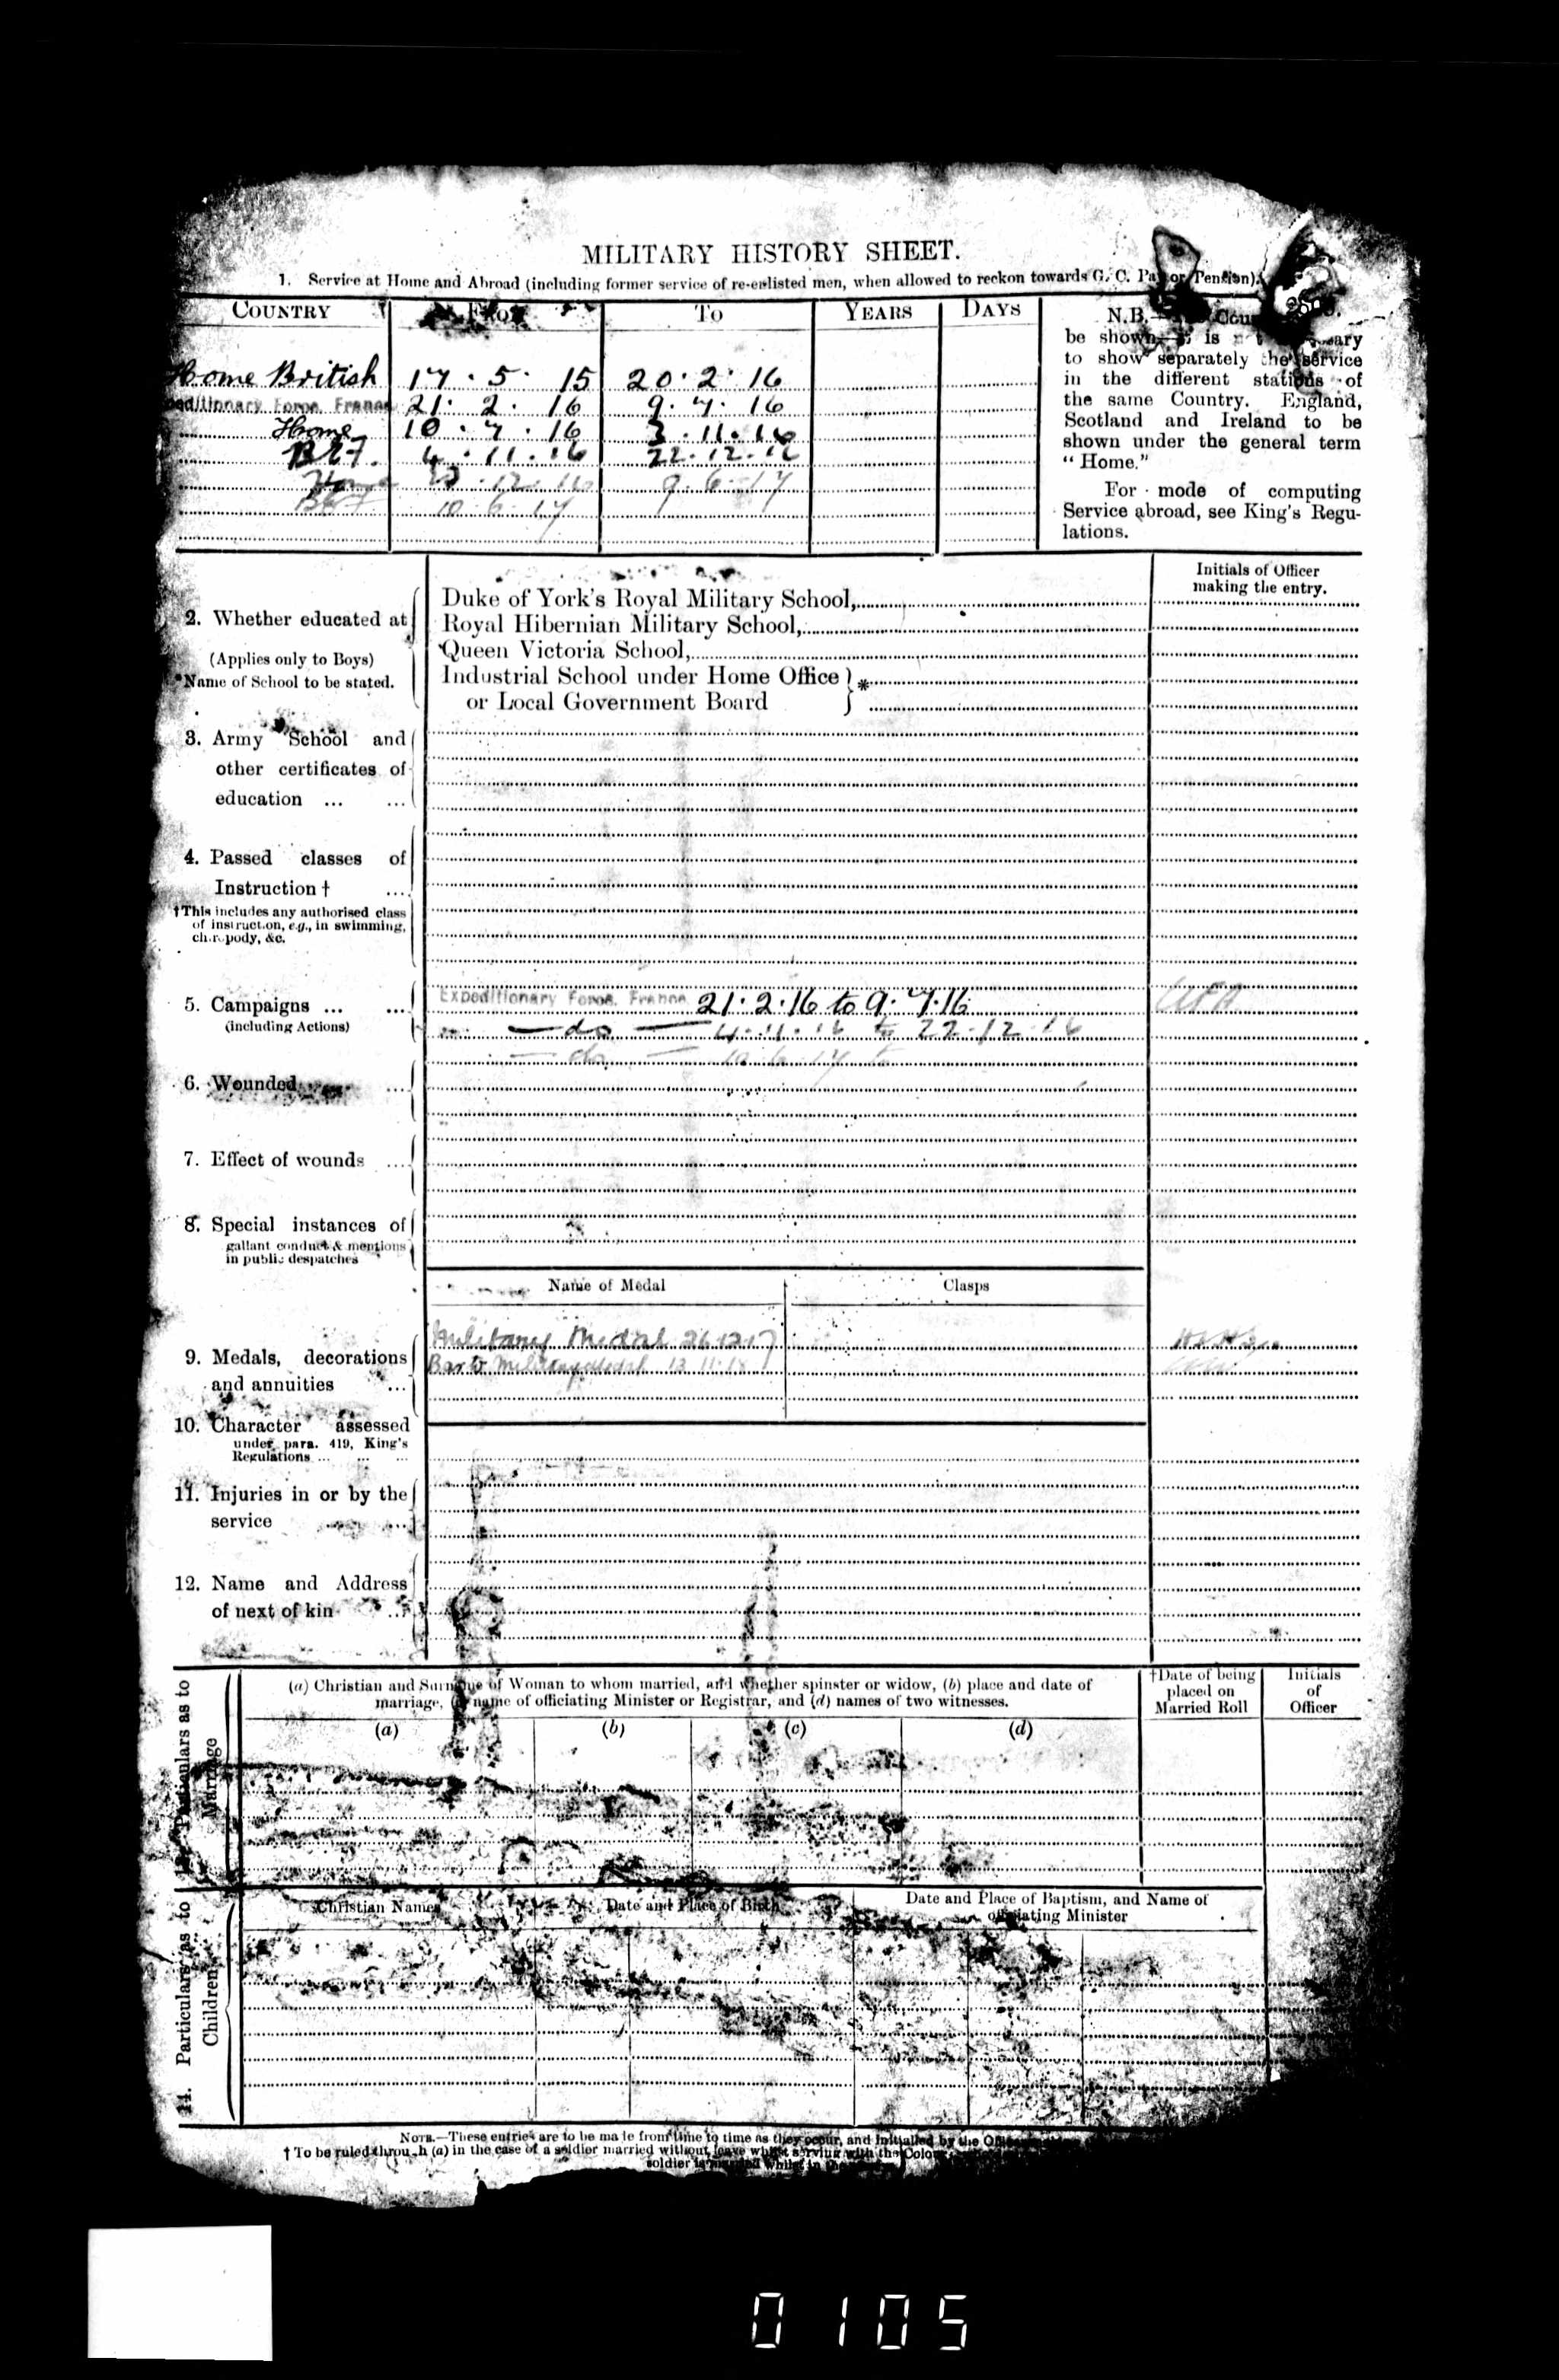 MILITARY HISTORY SHEET.
1. Service at Home and Abroad (including former service of re-enlisted men, when allowed to reckon towards G. C. Pay or Pension).
COUNTRY From To YEARS DAYS
Home British 17 . 5 . 15 20 . 2 . 16
Expeditionary Force. France 21 . 2 . 16 9 . 7 . 16
Home 10 . 7 . 16 3 . 11 . 16
BEF. 4 . 11 . 16 22 . 12 . 16
Home 23 . 12 . 16 9 . 6 . 17
BEF 10 . 6 . 17
N.B.—
be shown— is
to show separately the service
in the different stations of
the same Country. England,
Scotland and Ireland to be
shown under the general term
“ Home.”
For mode of computing
Service abroad, see King's Regu-
lations.
Initials of Officer
making the entry.
2. Whether educated at
(Applies only to Boys)
*Name of School to be stated.
Duke of York's Royal Military School,
Royal Hibernian Military School,
Queen Victoria School,
Industrial School under Home Office } *
or Local Government Board
3. Army School and
other certificates of
education ... ...
4. Passed classes of
Instruction † ...
†This includes any authorised class
of instruction, e.g., in swimming,
chiropody, &c.
5. Campaigns ... ...
(including Actions)
Expeditionary Force. France 21 . 2 . 16 to 9 . 7 . 16
— do — 4 . 11 . 16 to 22 . 12 . 16
— do — 10 . 6 . 17 to
6. Wounded ...
7. Effect of wounds ...
8. Special instances of
gallant conduct & mentions
in public despatches
Name of Medal Clasps
Military Medal 26.12.17
Bar to Military Medal 13.11.18
9. Medals, decorations
and annuities ...
10. Character assessed
under para. 419, King's
Regulations ... ... ...
11. Injuries in or by the
service ...
12. Name and Address
of next of kin ...
13. Particulars as to
Marriage
(a) Christian and Surname of Woman to whom married, and whether spinster or widow, (b) place and date of
marriage, (c) name of officiating Minister or Registrar, and (d) names of two witnesses.
†Date of being
placed on
Married Roll
Initials
of
Officer
(a) (b) (c) (d)
14. Particulars as to
Children
Christian Names Date and Place of Birth
Date and Place of Baptism, and Name of
officiating Minister
NOTE.—These entries are to be made from time to time as they occur, and initialled by the
† To be ruled through (a) in the case of a soldier married without leave whilst serving with the
soldier is married whilst in
0105